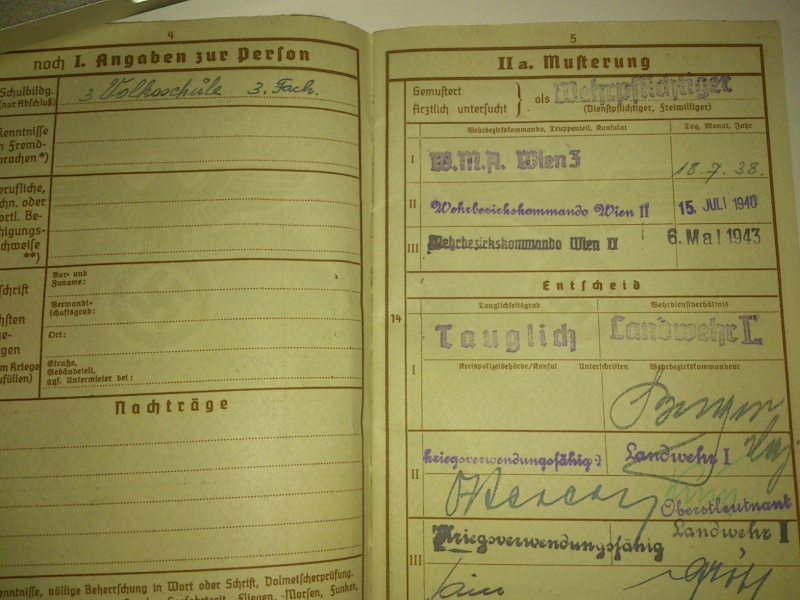 4
noch I. Angaben zur Person
Schulbildg.
(nur Abschluß)
3 Volksschule 3. Fach.
Kenntnisse
in Fremd-
sprachen *)
rufliche,
chn. oder
ortl. Be-
higungs-
chweise
**)
schrift
s
chsten
ge-
gen
m Kriege
füllen)
Vor- und
Zuname:
Verwandt-
schaftsgrad:
Ort:
Straße,
Gebäudeteil,
ggf. Untermieter bei:
Nachträge
enntnisse, völlige Beherrschung in Wort oder Schrift, Dolmetscherprüfung.
Fliegen, Morsen, Funken,
5
IIa. Musterung
Gemustert
Ärztlich untersucht } als Wehrpflichtiger
(Dienstpflichtiger, Freiwilliger)
Wehrbezirkskommando, Truppenteil, Konsulat Tag, Monat, Jahr
I W.M.A. Wien 3 18.7.38.
II Wehrbezirkskommando Wien II 15. JULI 1940
III Wehrbezirkskommando Wien II 6. Mai 1943
Entscheid
14
Tauglichkeitsgrad Wehrdienstverhältnis
Tauglich Landwehr I.
I Kreispolizeibehörde/Konsul Unterschriften Wehrbezirkskommandeur
kriegsverwendungsfähig Landwehr I
II
Oberstleutnant
Kriegsverwendungsfähig Landwehr I
III